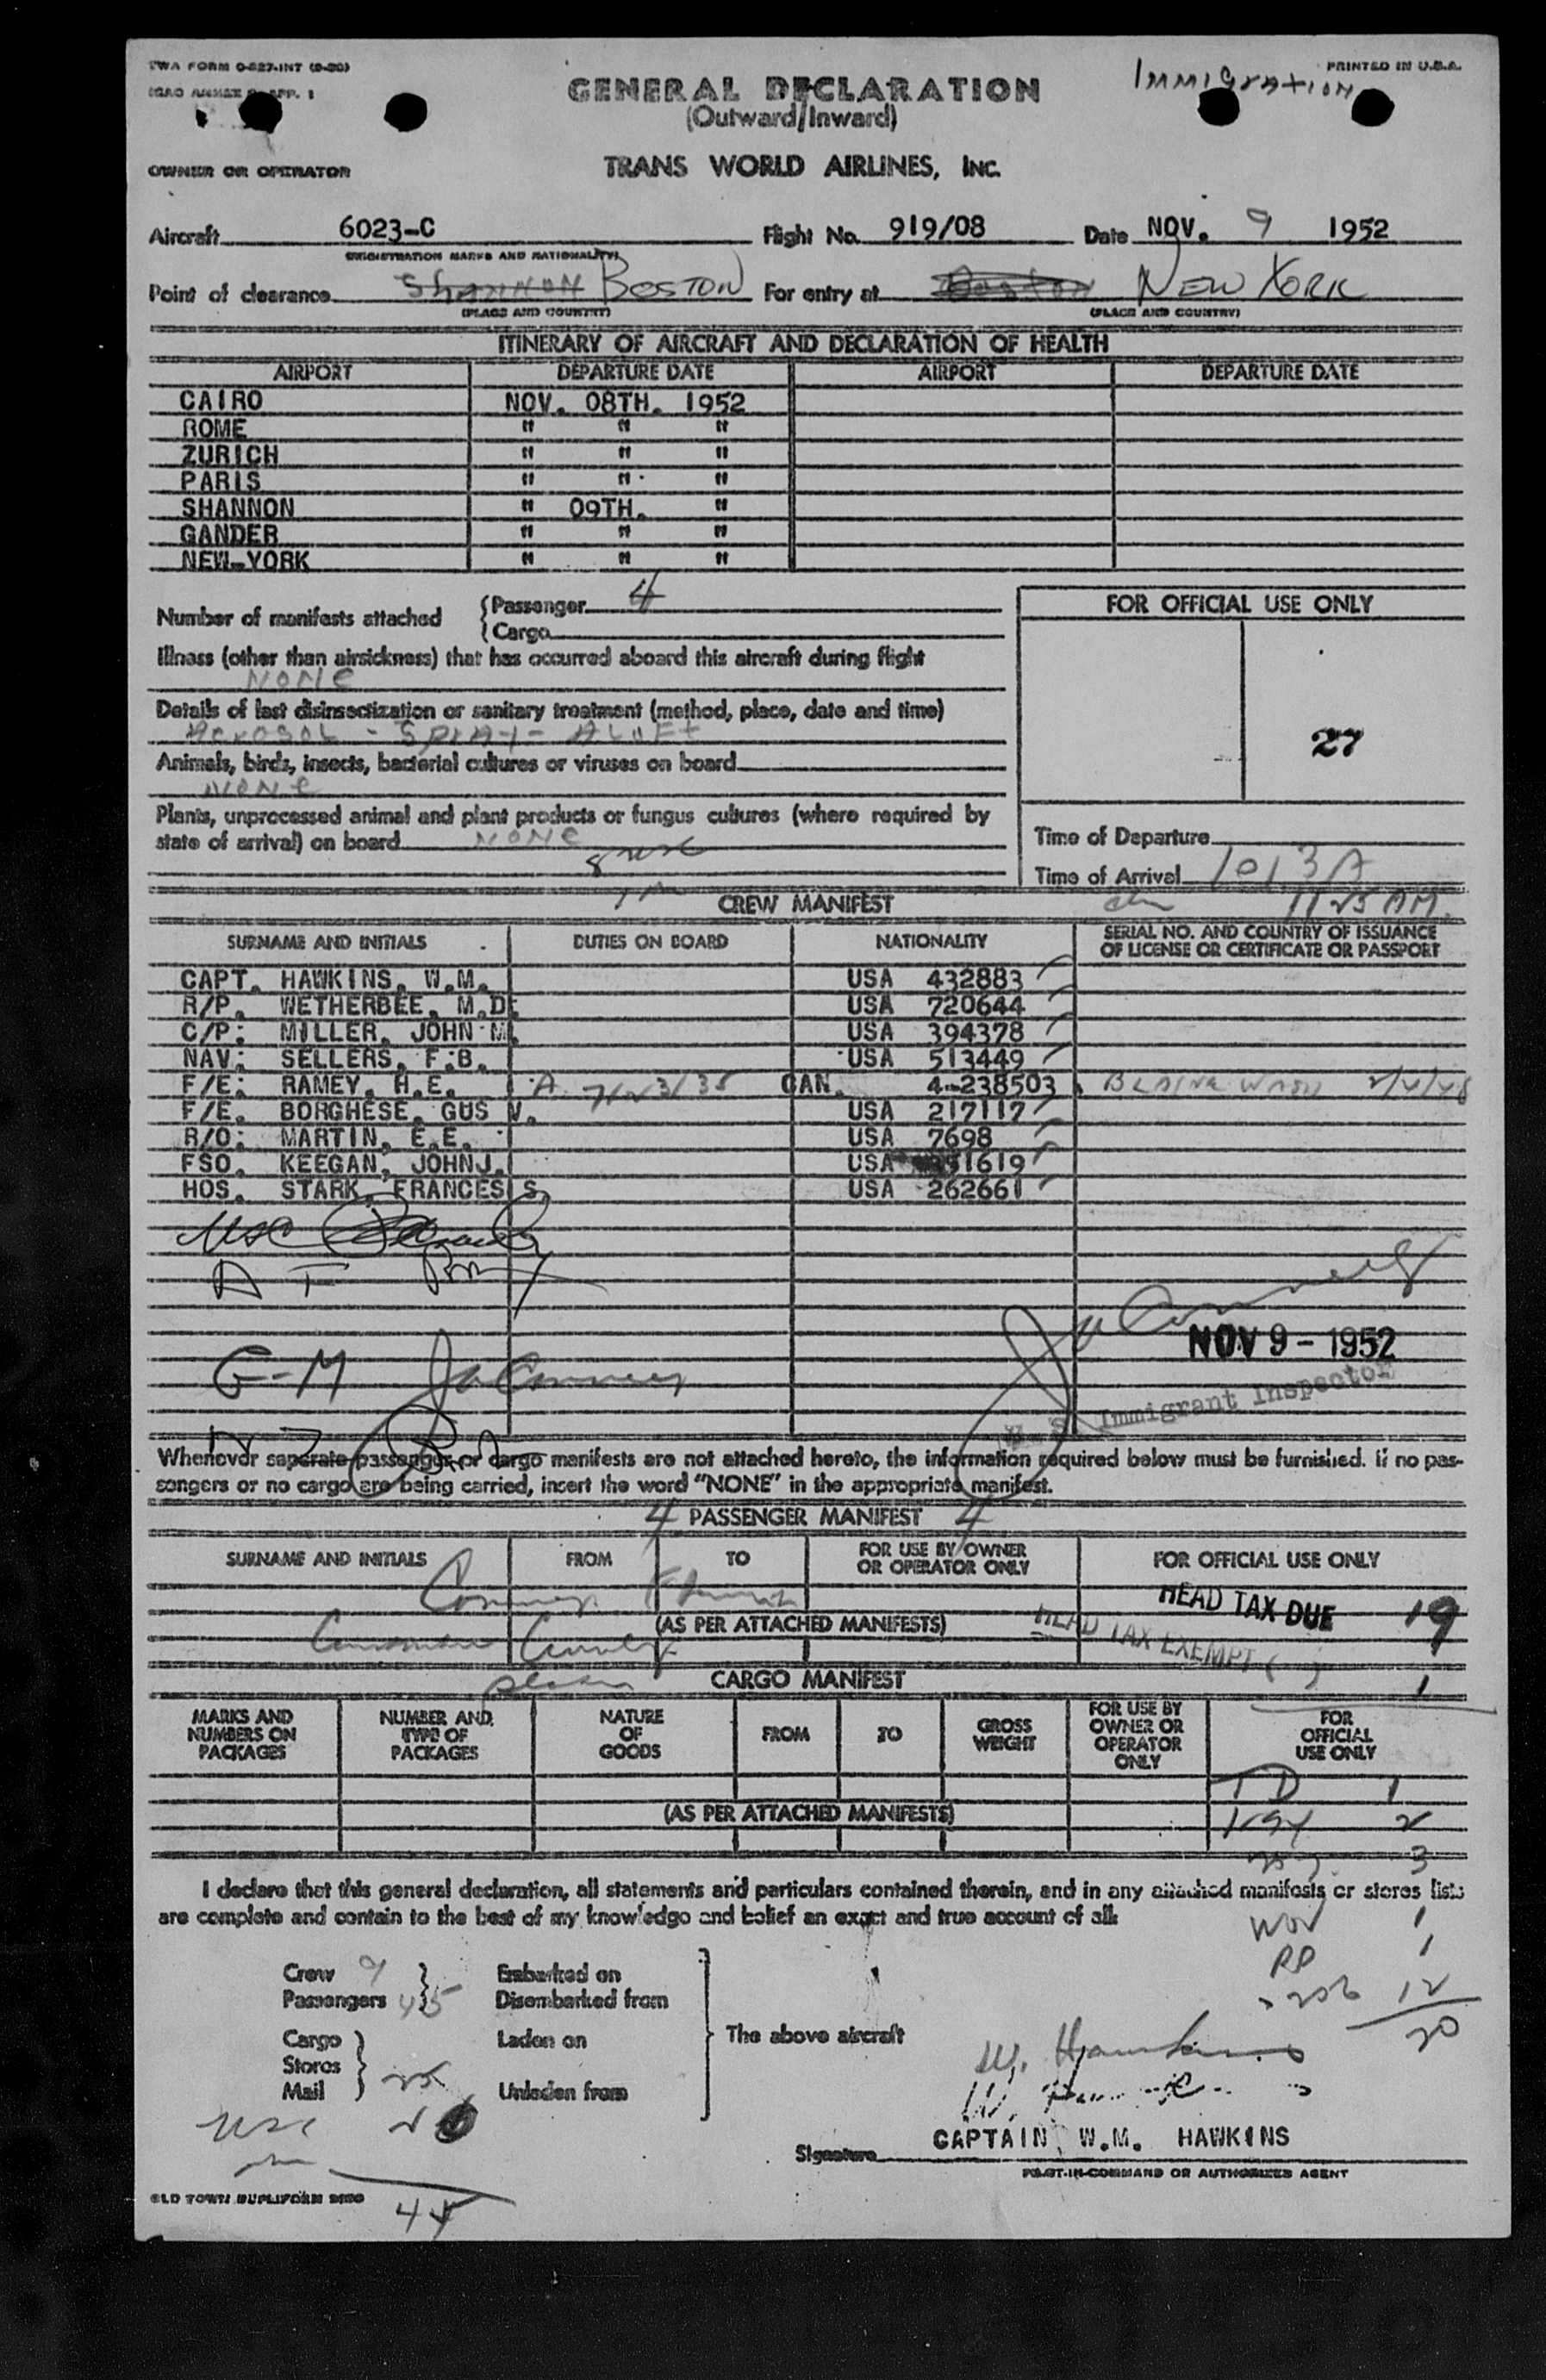 TWA FORM O-827-INT (9-50)
PRINTED IN U.S.A.
Immigration
GENERAL DECLARATION
(Outward/Inward)
OWNER OR OPERATOR
TRANS WORLD AIRLINES, INC.
Aircraft 6023-C Flight No. 919/08 Date NOV. 9 1952
(REGISTRATION MARKS AND NATIONALITY)
Point of clearance SHANNON BOSTON For entry at Boston NEW YORK
(PLACE AND COUNTRY) (PLACE AND COUNTRY)
ITINERARY OF AIRCRAFT AND DECLARATION OF HEALTH
AIRPORT DEPARTURE DATE AIRPORT DEPARTURE DATE
CAIRO NOV. 08TH. 1952
ROME " " "
ZURICH " " "
PARIS " " "
SHANNON " 09TH. "
GANDER " " "
NEW-YORK " " "
Number of manifests attached {Passenger 4
{Cargo
FOR OFFICIAL USE ONLY
Illness (other than airsickness) that has occurred aboard this aircraft during flight
NONE
Details of last disinsectization or sanitary treatment (method, place, date and time)
Aerosol - Spray - Aloft
27
Animals, birds, insects, bacterial cultures or viruses on board
NONE
Plants, unprocessed animal and plant products or fungus cultures (where required by
state of arrival) on board NONE
Time of Departure
Time of Arrival 1013A
1125 AM.
CREW MANIFEST
SURNAME AND INITIALS DUTIES ON BOARD NATIONALITY SERIAL NO. AND COUNTRY OF ISSUANCE
OF LICENSE OR CERTIFICATE OR PASSPORT
CAPT. HAWKINS, W.M. USA 432883
R/P. WETHERBEE, M.D. USA 720644
C/P: MILLER, JOHN M. USA 394378
NAV: SELLERS, F.B. USA 513449
F/E: RAMEY, H.E. A CAN. 4-238503 BLAINE WASH 2/4/48
F/E. BORGHESE, GUS V. USA 217117
R/O: MARTIN, E.E. USA 7698
FSO. KEEGAN, JOHNJ. USA 1619
HOS. STARK, FRANCES S. USA 262661
NOV 9 - 1952
G-M
U. S. Immigrant Inspector
Whenever separate passenger or cargo manifests are not attached hereto, the information required below must be furnished. If no pas-
sengers or no cargo are being carried, insert the word "NONE" in the appropriate manifest.
4 PASSENGER MANIFEST 4
SURNAME AND INITIALS FROM TO FOR USE BY OWNER
OR OPERATOR ONLY FOR OFFICIAL USE ONLY
HEAD TAX DUE 19
(AS PER ATTACHED MANIFESTS)
HEAD TAX EXEMPT ( ) 1
CARGO MANIFEST
MARKS AND
NUMBERS ON
PACKAGES
NUMBER AND
TYPE OF
PACKAGES
NATURE
OF
GOODS
FROM
TO
GROSS
WEIGHT
FOR USE BY
OWNER OR
OPERATOR
ONLY
FOR
OFFICIAL
USE ONLY
TD 1
(AS PER ATTACHED MANIFESTS)
2
3
I declare that this general declaration, all statements and particulars contained therein, and in any attached manifests or stores lists
are complete and contain to the best of my knowledge and belief an exact and true account of all:
1
RP 1
12
20
Crew 9 } Embarked on
Passengers 45 } Disembarked from
The above aircraft
Cargo Laden on
Stores
Mail Unladen from
W. Hawkins
Signature CAPTAIN W.M. HAWKINS
PILOT-IN-COMMAND OR AUTHORIZED AGENT
OLD TOWN DUPLIFORM
45